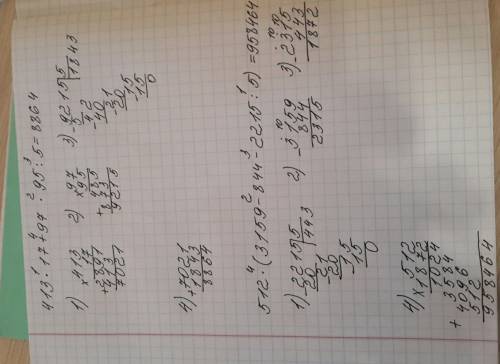 413 · 17 + 97 · 95 : 5 = 8864
1 4 2 3
1) 413
× 17
2891
+ 413
7021
2) 97
× 95
485
+ 873
9215
3) 9215 | 5
- 5 | 1843
42
- 40
21
- 20
15
- 15
0
4) 7021
+ 1843
8864
512 · (3159 - 844 - 2215 : 5) = 958464
4 2 3 1
1) 2215 | 5
- 20 | 443
21
- 20
15
- 15
0
2) 3159
- 844
2315
3) 2315
- 443
1872
4) 512
× 1872
1024
+ 3584
4096
512
958464